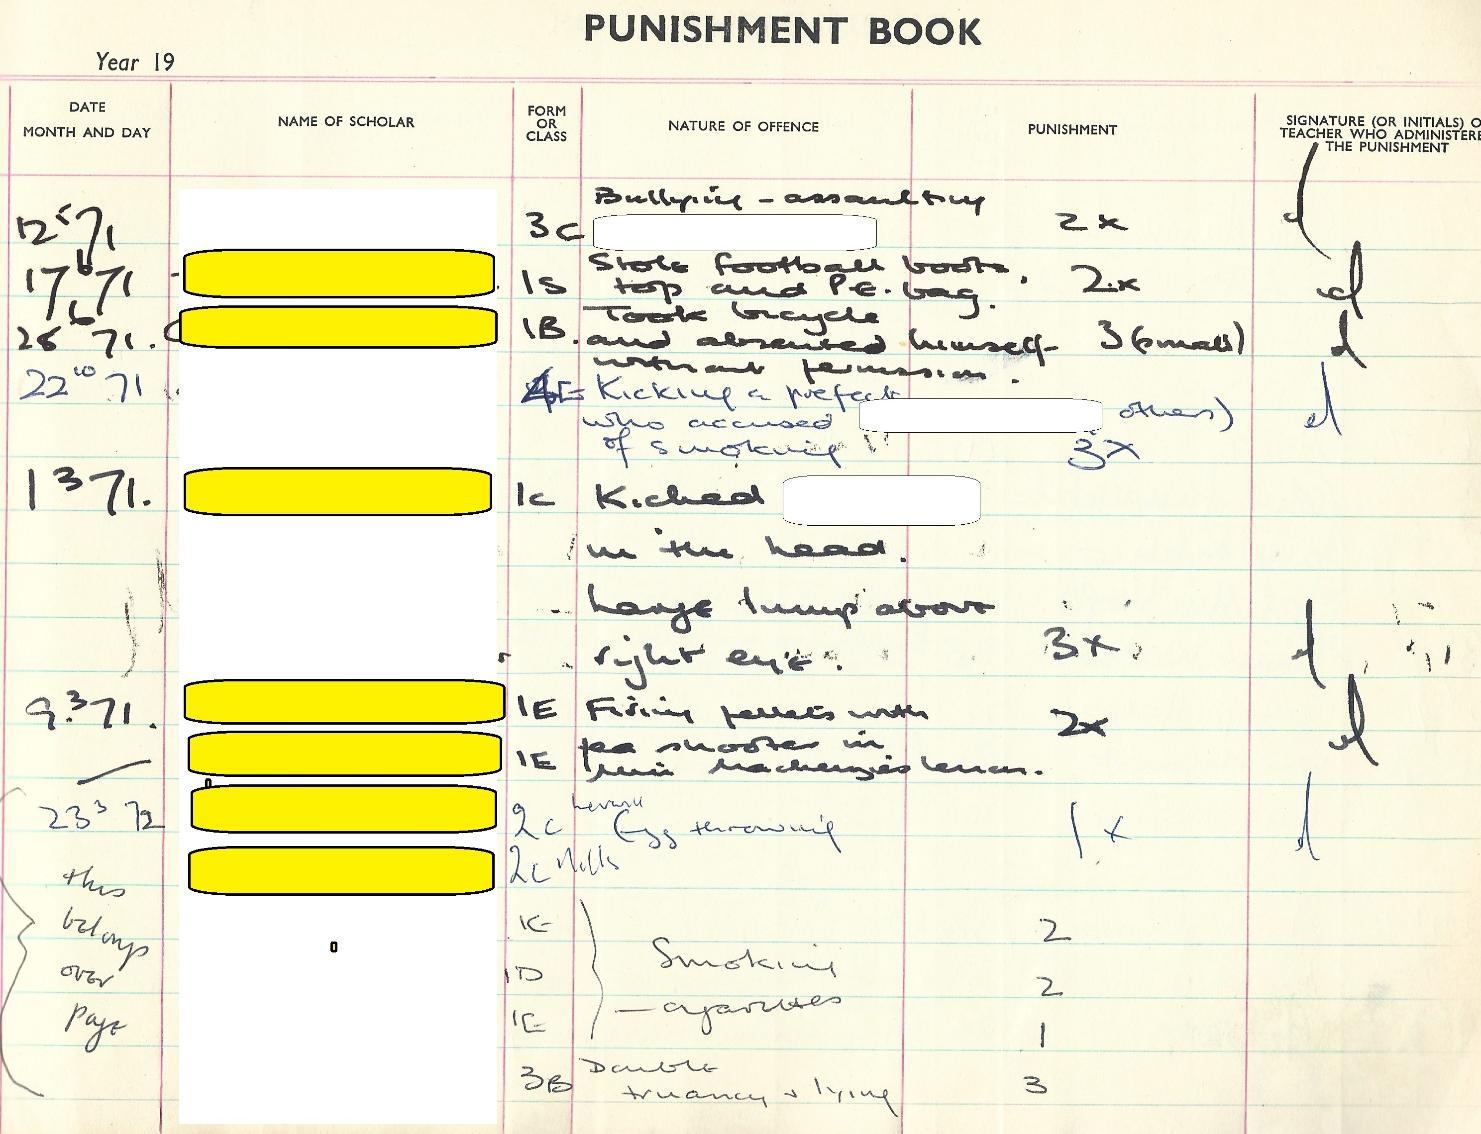 PUNISHMENT BOOK
Year 19
DATE
MONTH AND DAY
NAME OF SCHOLAR
FORM
OR
CLASS
NATURE OF OFFENCE
PUNISHMENT
SIGNATURE (OR INITIALS) O
TEACHER WHO ADMINISTERE
THE PUNISHMENT
Bullying - assaulting
12 5 71 3C 2x
Stole football boots,
17 6 71 1S top and P.E. bag. 2x
Took bicycle
71. 1B. and absented himself 3 (small)
without permission.
22 10 71 4E Kicking a prefect
who accused others)
of smoking !! 3x
1 3 71. 1C Kicked
in the head.
Large lump above
right eye. 3x
9.3 71. 1E Firing pellets with 2x
1E pea shooter in
lesson.
23 3 72 2C Egg throwing 1x
2C
this
belongs
over
page
1E 2
Smoking
1D 2
cigarettes
1E 1
3B Double 3
truancy & lying